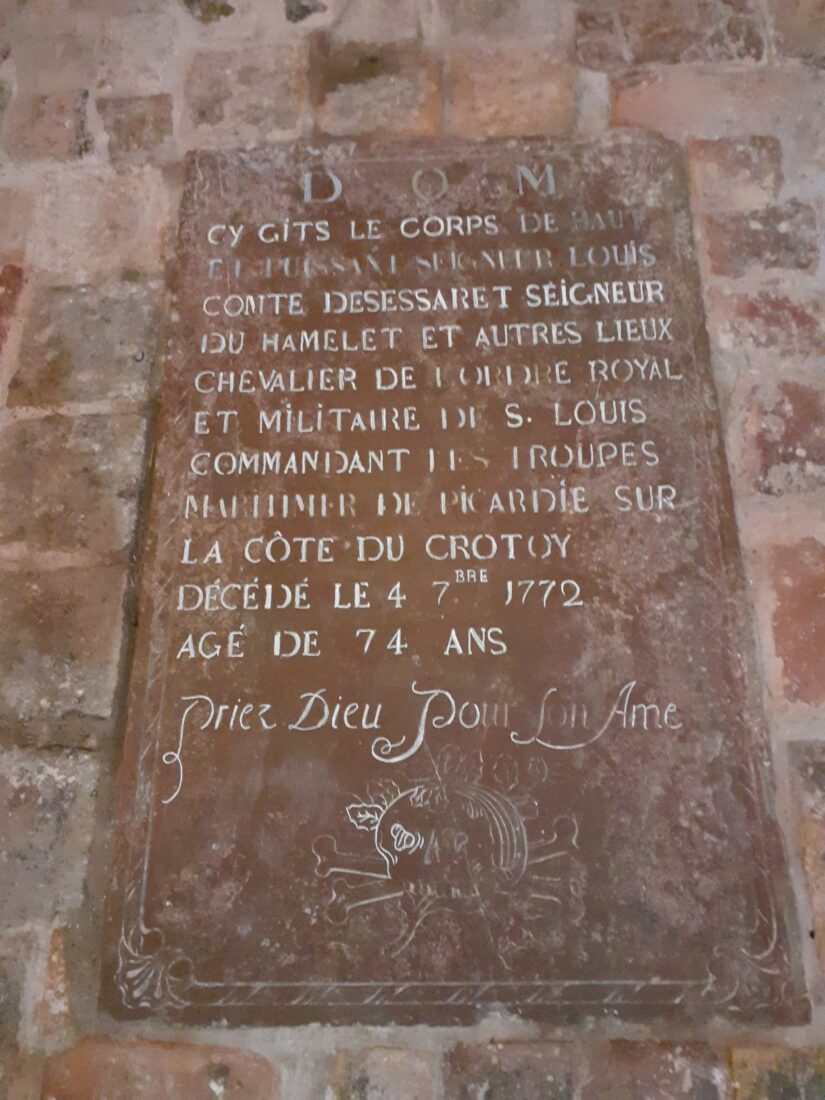 D O M
CY GITS LE CORPS DE HAUT
ET PUISSANT SEIGNEUR LOUIS
COMTE DESESSARET SEIGNEUR
DU HAMELET ET AUTRES LIEUX
CHEVALIER DE L'ORDRE ROYAL
ET MILITAIRE DE S. LOUIS
COMMANDANT LES TROUPES
MARITIMER DE PICARDIE SUR
LA CÔTE DU CROTOY
DÉCÉDÉ LE 4 7BRE 1772
AGÉ DE 74 ANS
Priez Dieu Pour Son Ame